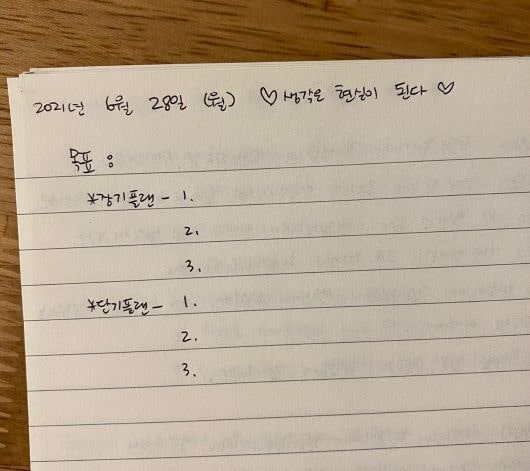 2021년 6월 28일 (월) ♡ 생각은 현실이 된다 ♡
목표 :
*장기플랜 - 1.
2.
3.
*단기플랜 - 1.
2.
3.